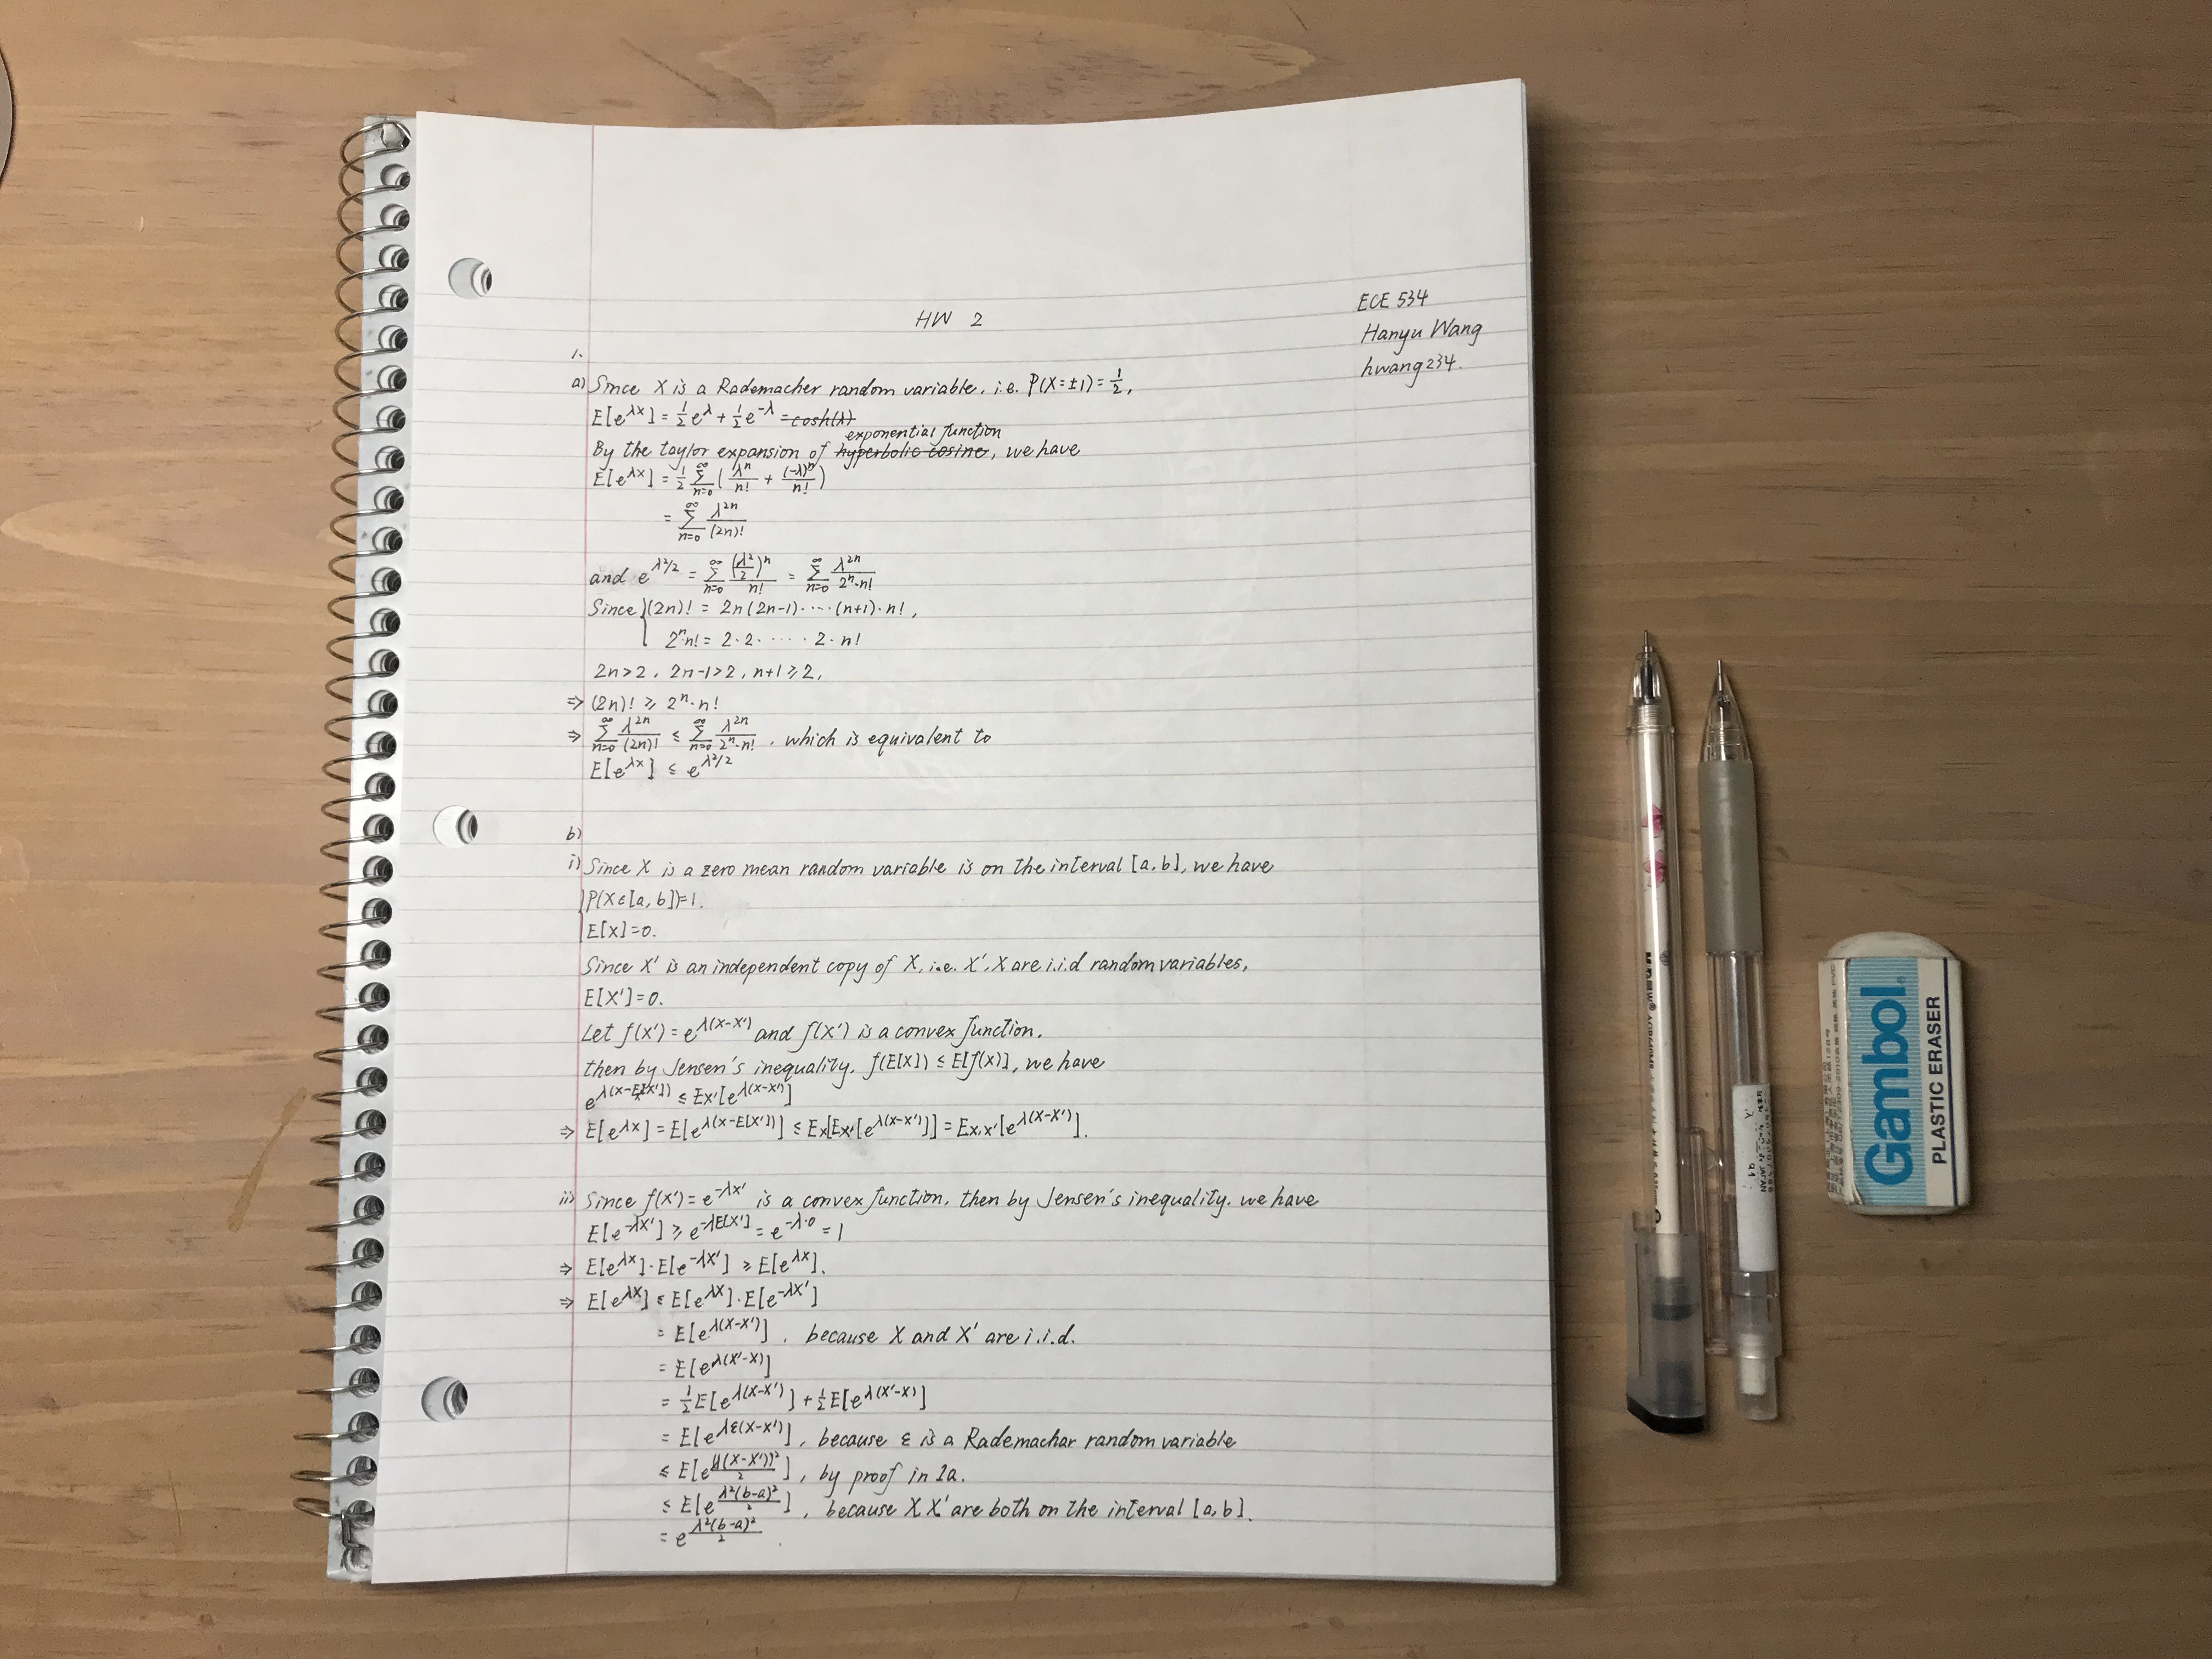 HW 2
ECE 534
Hanyu Wang
hwang234.
1.
a) Since X is a Rademacher random variable, i.e. P(X=±1)=1/2,
E[e^{λX}] = 1/2 e^λ + 1/2 e^{-λ} = cosh(λ)
exponential function
By the taylor expansion of hyperbolic cosine, we have
E[e^{λX}] = 1/2 Σ_{n=0}^∞ (λ^n/n! + (-λ)^n/n!)
= Σ_{n=0}^∞ λ^{2n}/(2n)!
and e^{λ²/2} = Σ_{n=0}^∞ (λ²/2)^n/n! = Σ_{n=0}^∞ λ^{2n}/(2^n·n!)
Since { (2n)! = 2n(2n-1)·····(n+1)·n!,
2^n·n! = 2·2·····2·n!
2n>2, 2n-1>2, n+1≥2,
⇒ (2n)! ≥ 2^n·n!
⇒ Σ_{n=0}^∞ λ^{2n}/(2n)! ≤ Σ_{n=0}^∞ λ^{2n}/(2^n·n!), which is equivalent to
E[e^{λX}] ≤ e^{λ²/2}
b)
i) Since X is a zero mean random variable is on the interval [a,b], we have
{ P(X∈[a,b])=1.
E[X]=0.
Since X' is an independent copy of X, i.e. X', X are i.i.d random variables,
E[X']=0.
Let f(X') = e^{λ(X-X')} and f(X') is a convex function.
then by Jensen's inequality, f(E[X]) ≤ E[f(X)], we have
e^{λ(X-E[X'])} ≤ E_{X'}[e^{λ(X-X')}]
⇒ E[e^{λX}] = E[e^{λ(X-E[X'])}] ≤ E_X[E_{X'}[e^{λ(X-X')}]] = E_{X,X'}[e^{λ(X-X')}].
ii) Since f(X') = e^{-λX'} is a convex function, then by Jensen's inequality, we have
E[e^{-λX'}] ≥ e^{-λE[X']} = e^{-λ·0} = 1
⇒ E[e^{λX}]·E[e^{-λX'}] ≥ E[e^{λX}].
⇒ E[e^{λX}] ≤ E[e^{λX}]·E[e^{-λX'}]
= E[e^{λ(X-X')}], because X and X' are i.i.d.
= E[e^{λ(X'-X)}]
= 1/2 E[e^{λ(X-X')}] + 1/2 E[e^{λ(X'-X)}]
= E[e^{λε(X-X')}], because ε is a Rademachar random variable
≤ E[e^{(λ(X-X'))²/2}], by proof in 1a.
≤ E[e^{λ²(b-a)²/2}], because X X' are both on the interval [a,b].
= e^{λ²(b-a)²/2}
Gambol
PLASTIC ERASER